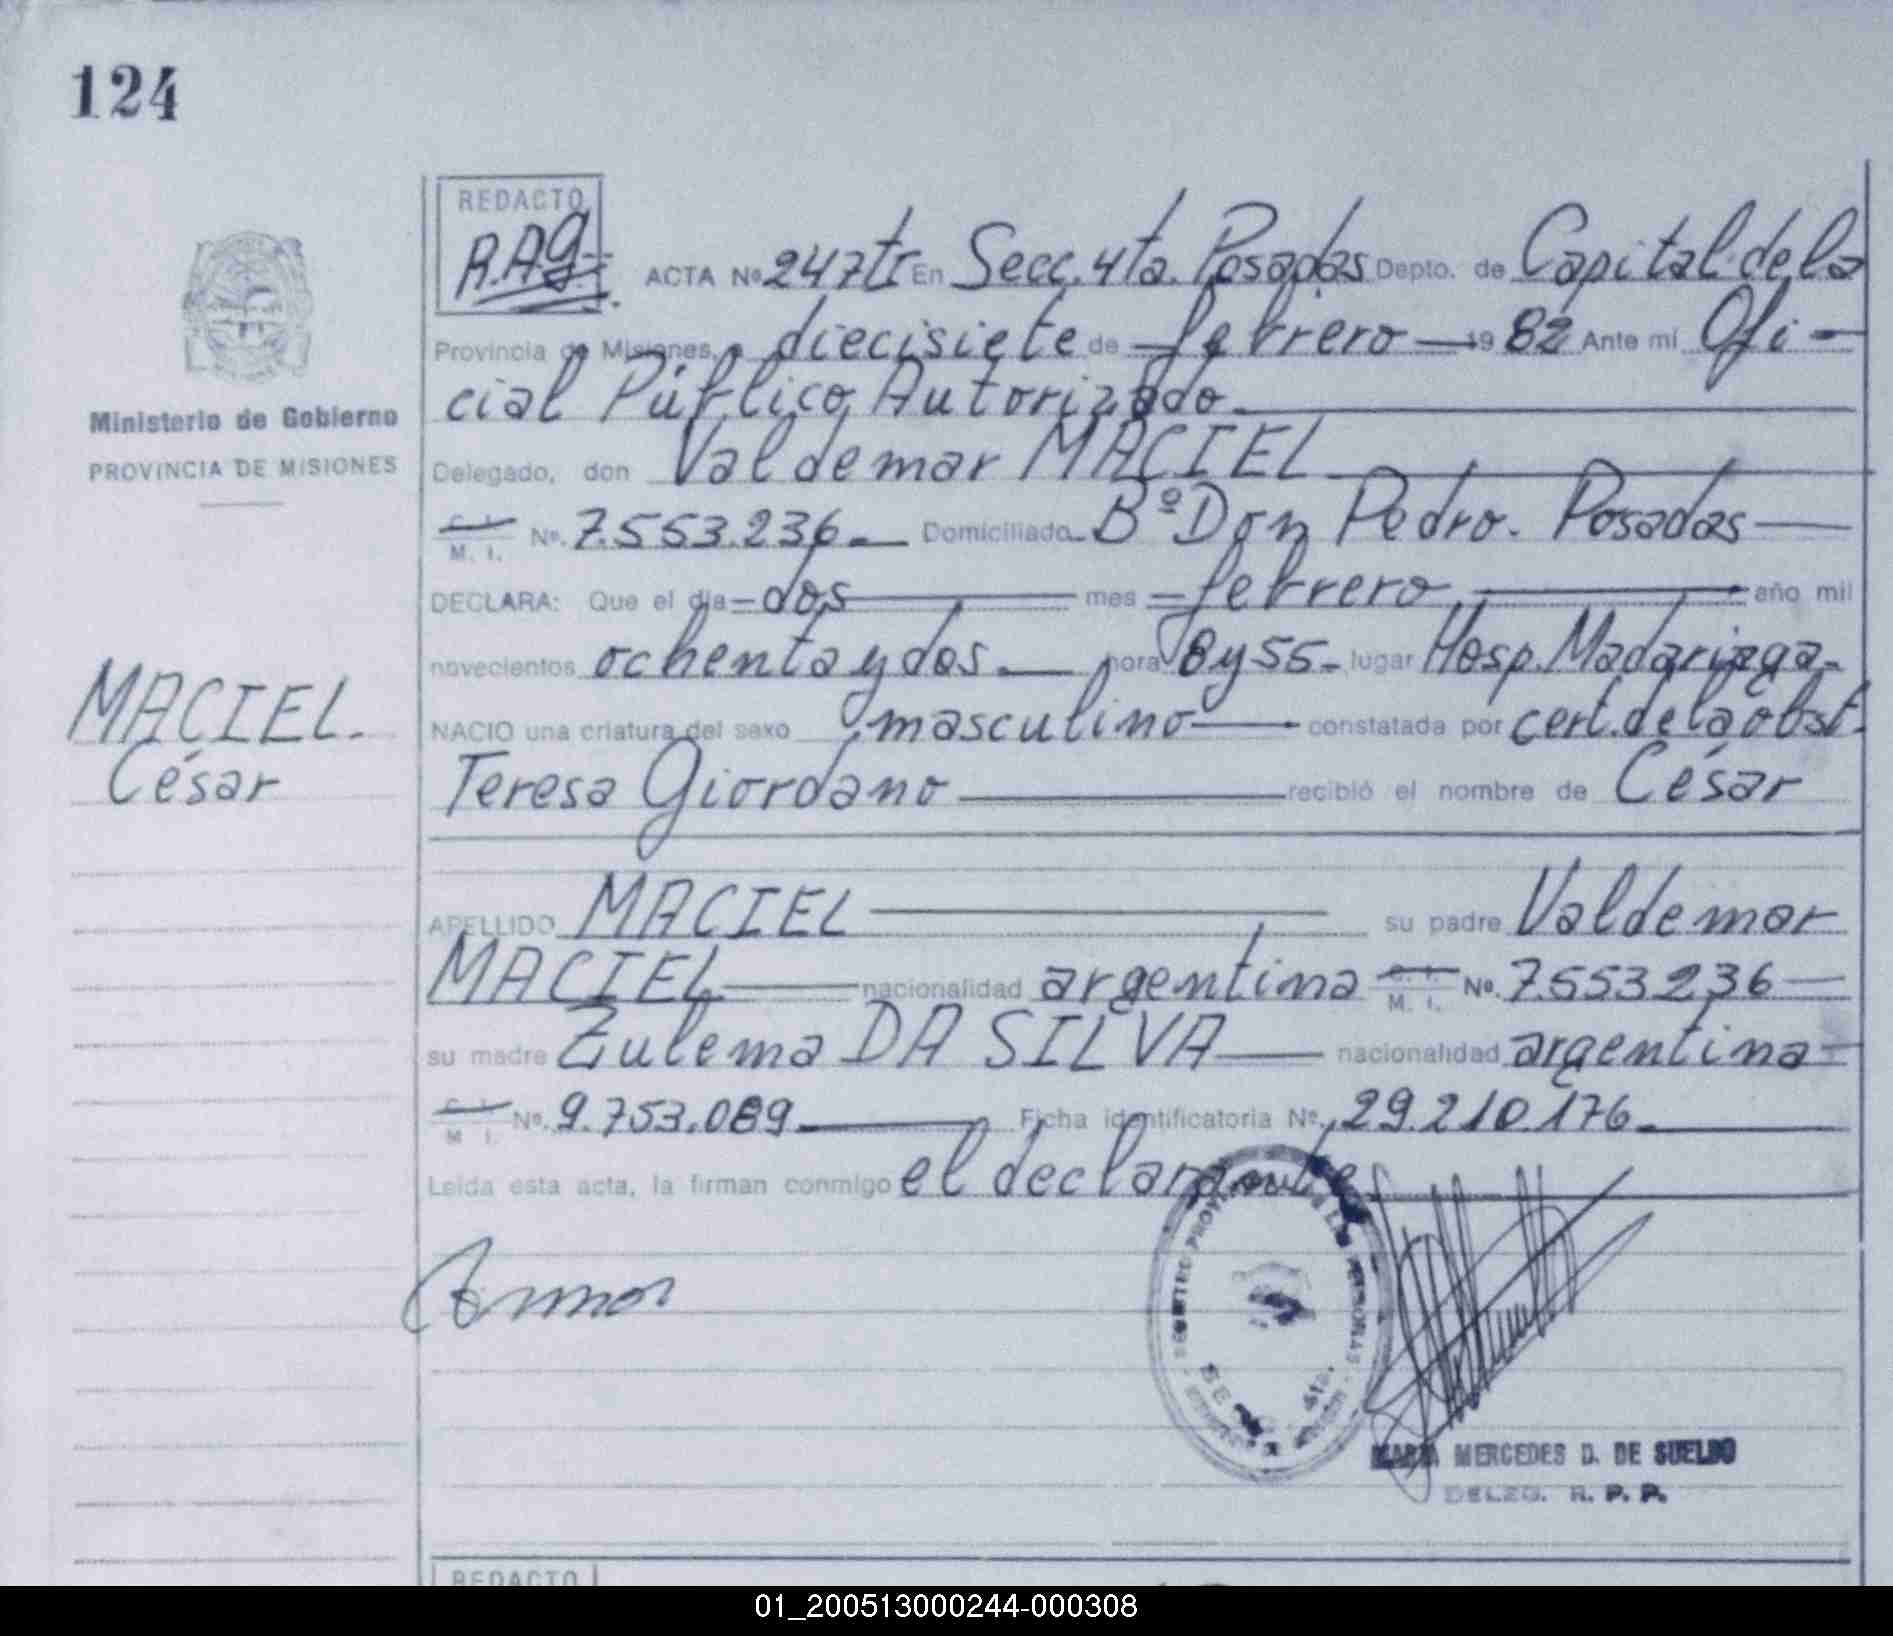 124
REDACTO
R.A.G.
ACTA Nº 247 tr En Secc. 4ta. Posadas Depto. de Capital de la
Provincia de Misiones, a diecisiete de febrero 19 82 Ante mí Ofi-
cial Público Autorizado.
Ministerio de Gobierno
PROVINCIA DE MISIONES
Delegado, don Valdemar MACIEL
C. I.
M. I. Nº. 7.553.236 Domiciliado Bº Don Pedro. Posadas
DECLARA: Que el día dos mes febrero año mil
novecientos ochenta y dos hora 8 y 55 lugar Hosp. Madariaga
NACIO una criatura del sexo masculino constatada por cert. de la obst.
Teresa Giordano recibió el nombre de César
MACIEL.
César
APELLIDO MACIEL su padre Valdemar
MACIEL nacionalidad argentina C. I. M. I. Nº. 7.553.236
su madre Zulema DA SILVA nacionalidad argentina
C. I.
M. I. Nº. 9.753.089 Ficha identificatoria Nº. 29.210.176
Leída esta acta, la firman conmigo el declarante
DE LAS PERSONAS
4ta.
MARIA MERCEDES D. DE SUELDO
DELEG. R. P. P.
REDACTO
01_200513000244-000308